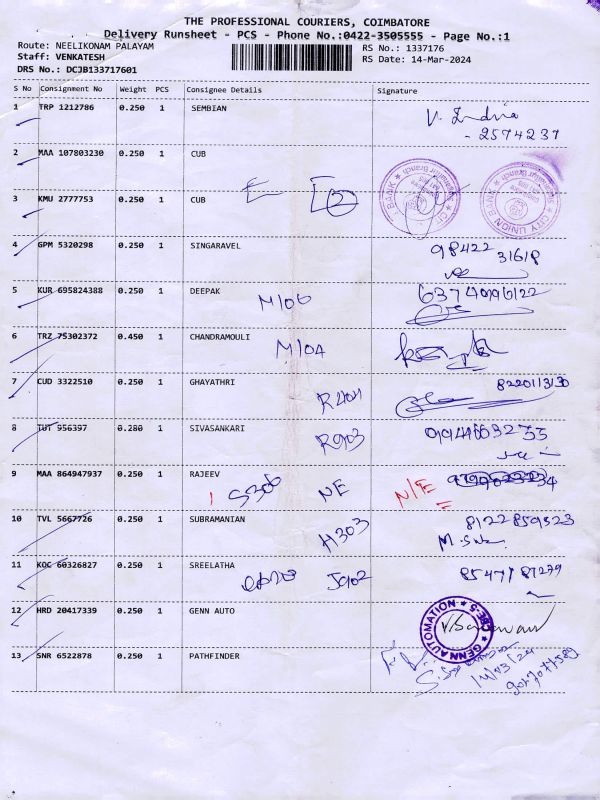 THE PROFESSIONAL COURIERS, COIMBATORE
Delivery Runsheet - PCS - Phone No.:0422-3505555 - Page No.:1
Route: NEELIKONAM PALAYAM RS No.: 1337176
Staff: VENKATESH RS Date: 14-Mar-2024
DRS No.: DCJB133717601
S No Consignment No Weight PCS Consignee Details Signature
1 TRP 1212786 0.250 1 SEMBIAN V. Indra
- 2574237
2 MAA 107803230 0.250 1 CUB
3 KMU 2777753 0.250 1 CUB
CITY UNION BANK
4 GPM 5320298 0.250 1 SINGARAVEL 98422 31618
5 KUR 695824388 0.250 1 DEEPAK M106
6 TRZ 75302372 0.450 1 CHANDRAMOULI M104
7 CUD 3322510 0.250 1 GHAYATHRI R404 8220113130
8 TUT 956397 0.280 1 SIVASANKARI R903
9 MAA 864947937 0.250 1 RAJEEV S306 NE N/E
10 TVL 5667726 0.250 1 SUBRAMANIAN H303 8122859523
11 KOC 60326827 0.250 1 SREELATHA J902
12 HRD 20417339 0.250 1 GENN AUTO
GENN AUTOMATION * CBE-5 *
13 SNR 6522878 0.250 1 PATHFINDER
14/03/24